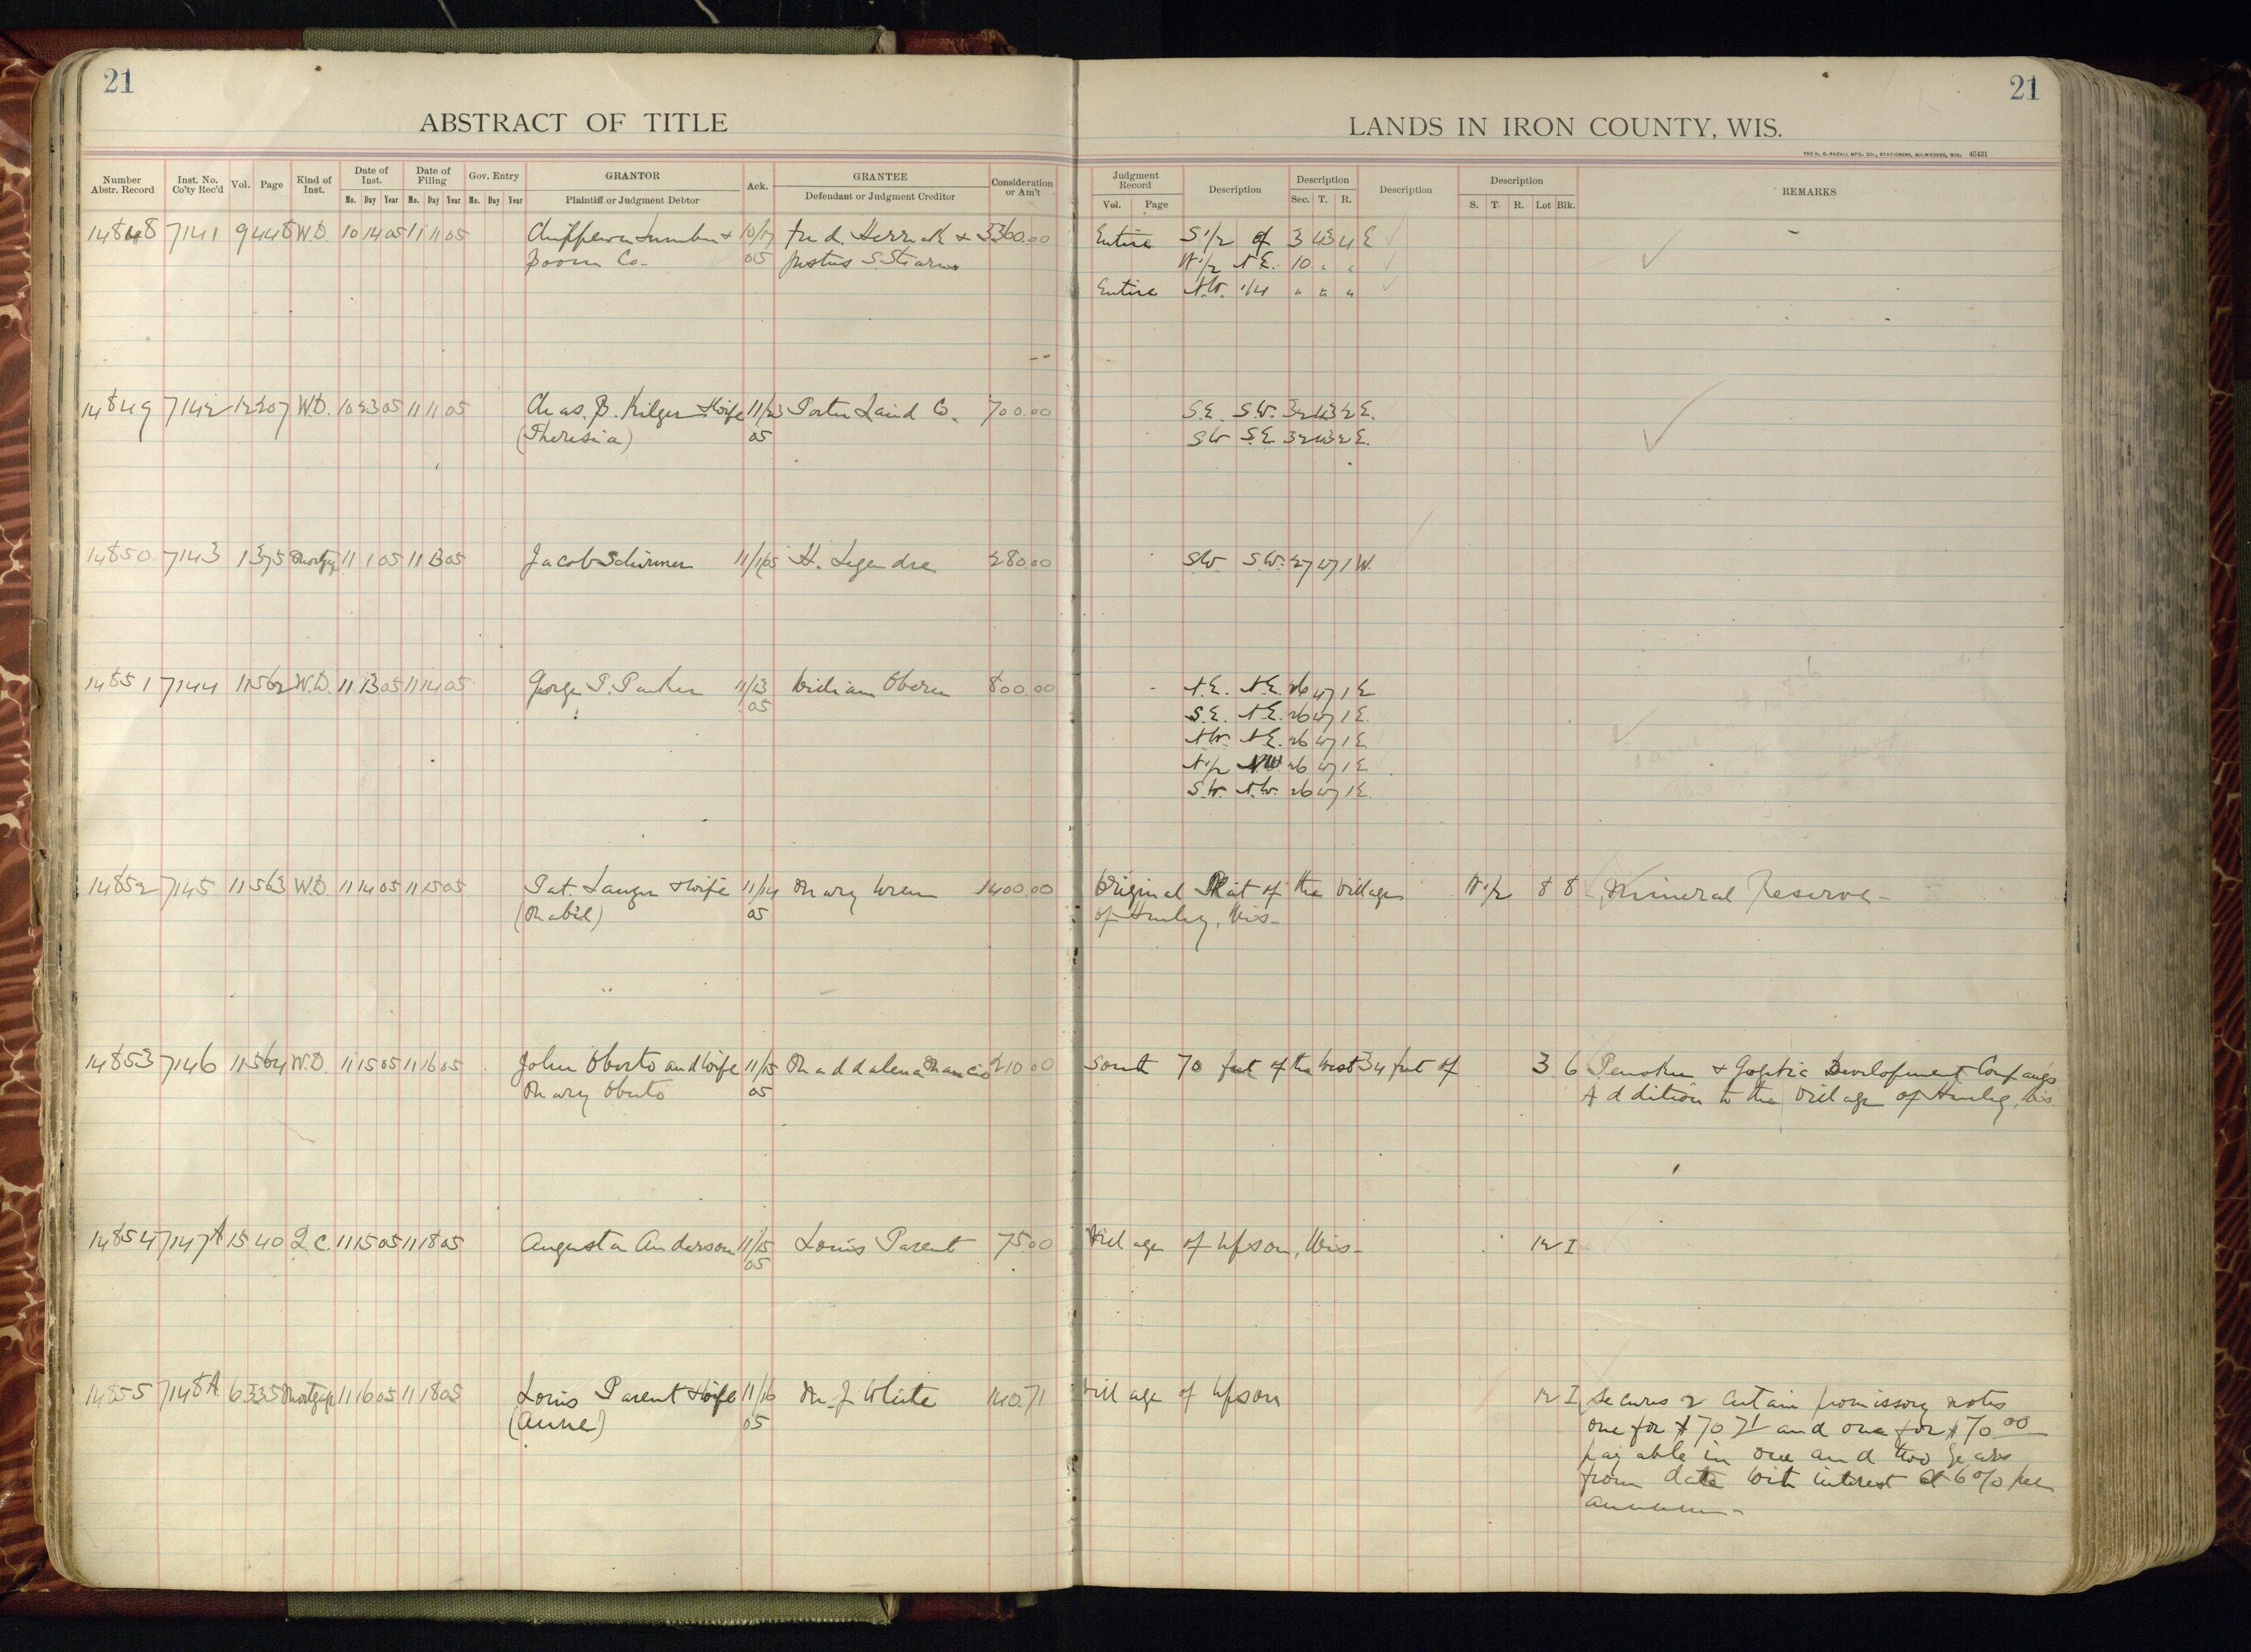 21
21
ABSTRACT OF TITLE
LANDS IN IRON COUNTY, WIS.
THE H. G. RAZALL MFG. CO., STATIONERS, MILWAUKEE, WIS. 45431
Number Abstr. Record Inst. No. Co'ty Rec'd Vol. Page Kind of Inst. Date of Inst. Mo. Day Year Date of Filing Mo. Day Year Gov. Entry Mo. Day Year GRANTOR Plaintiff or Judgment Debtor Ack. GRANTEE Defendant or Judgment Creditor Consideration or Am't
Judgment Record Vol. Page Description Description Sec. T. R. Description Description S. T. R. Lot Blk. REMARKS
14848 7141 9 448 W.D. 10 14 05 11 11 05 Chippewa Lumber & 10/17 Fred. Herrick & 3360.00 Entire S 1/2 of 3 43 4 E
Boom Co. 05 Justus S. Stearns N 1/2 N E. 10 " "
Entire N.W. 1/4 " " "
14849 7142 12 207 W.D. 10 23 05 11 11 05 Chas. B. Kilger & Wife 11/23 Porter Land Co. 700.00 S.E. S.W. 32 43 2 E.
(Theresia) 05 SW S.E 32 43 2 E.
14850. 7143 1 375 Mortgage 11 1 05 11 13 05 Jacob Schirmer 11/1/05 H. Legendre 280.00 SW S.W. 27 47 1 W.
14851 7144 11 562 W.D. 11 13 05 11 14 05 George P. Parker 11/13 William Oberem 800.00 N.E. N.E. 26 47 1 E
05 S.E. N.E. 26 47 1 E.
N.W. N.E. 26 47 1 E
N 1/2 NW 26 47 1 E
S.W. N.W. 26 47 1 E.
14852 7145 11 563 W.D. 11 14 05 11 15 05 Pat. & Wife 11/14 Mary 1400.00 Original Plat of the Village N 1/2 8 8 Mineral Reserve
(Mabel) 05 of Hurley, Wis
14853 7146 11 564 W.D. 11 15 05 11 16 05 John Oberto and Wife 11/15 Maddalena Mancio 210 00 South 70 feet of the West 34 feet of 3 6 Penokee & Gogebic Development Companys
Mary Oberto 05 Addition to the Village of Hurley, Wis.
14854 7147A 15 40 Q.C. 11 15 05 11 18 05 Augusta Anderson 11/15 Louis Parent 75 00 Village of Upson, Wis 12 I
05
14855 7148A 6 335 Mortgage 11 16 05 11 18 05 Louis Parent & Wife 11/16 M. J. White 140.71 Village of Upson 12 I Secures 2 certain promissory notes
(Anne) 05 one for $70 71 and one for $70 00
payable in one and two years
from date with interest at 6% per
annum